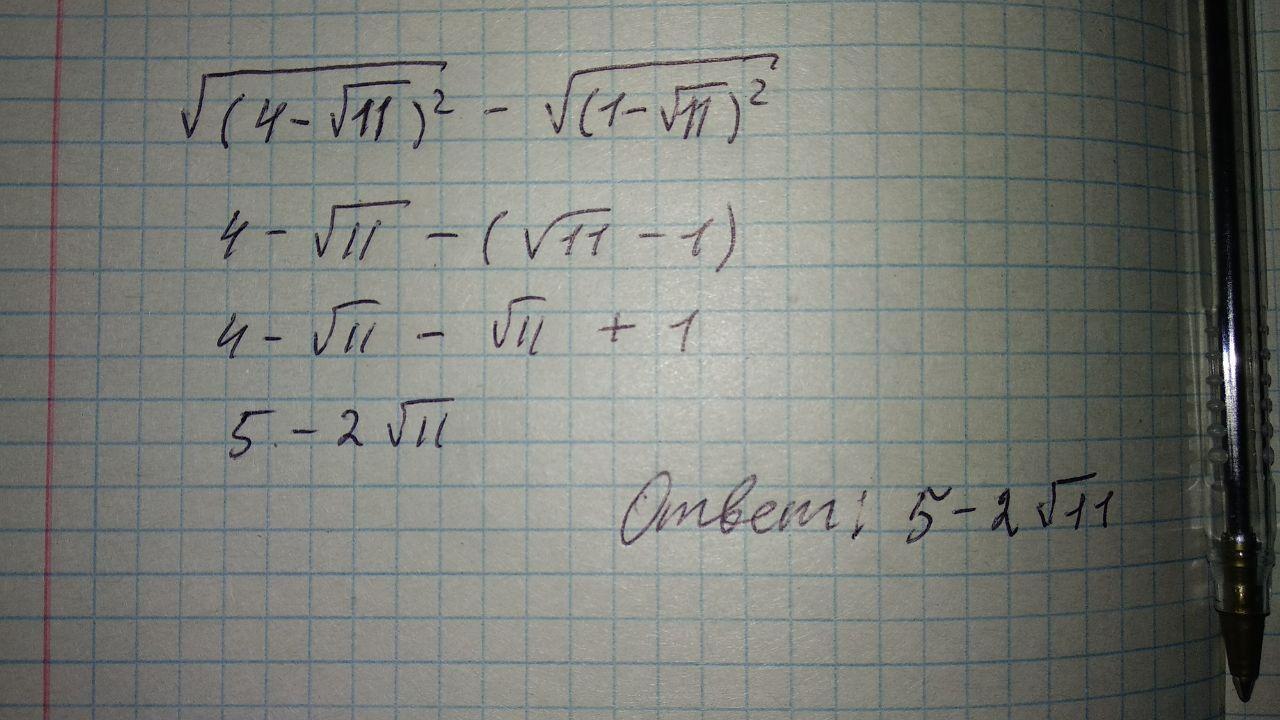 √(4-√11)² - √(1-√11)²
4 - √11 - (√11 - 1)
4 - √11 - √11 + 1
5 - 2√11
Ответ: 5 - 2√11